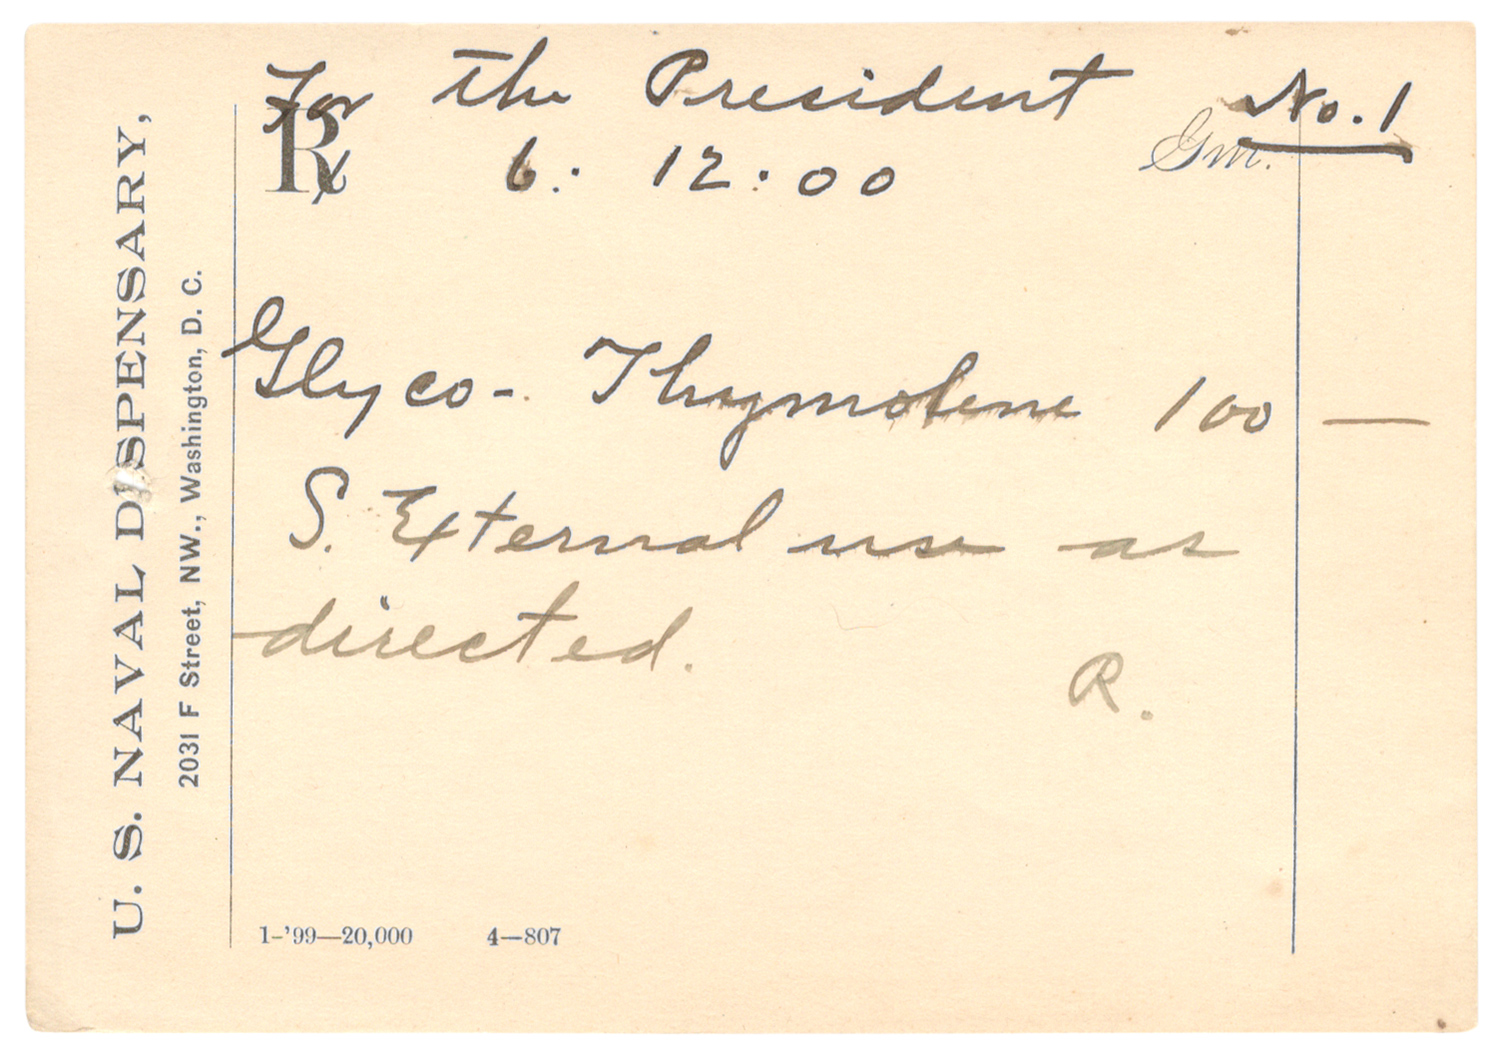 For the President No. 1
℞ 6: 12:00 Gm.
Glyco- Thymolene 100 —
S. External use as
directed.
R.
U. S. NAVAL DISPENSARY,
2031 F Street, NW., Washington, D. C.
1-'99—20,000 4—807